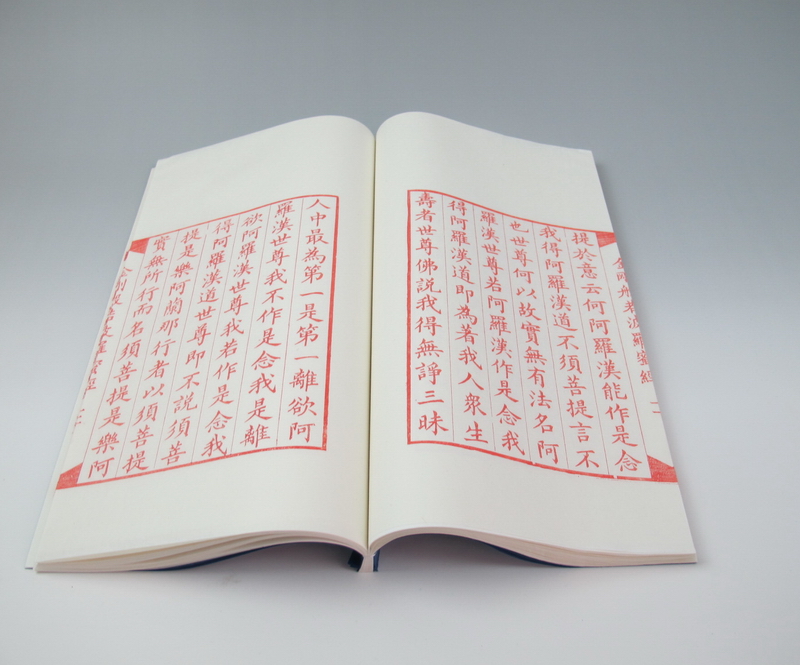 金剛般若波羅蜜經
提於意云何阿羅漢能作是念
我得阿羅漢道不須菩提言不
也世尊何以故實無有法名阿
羅漢世尊若阿羅漢作是念我
得阿羅漢道即為著我人衆生
壽者世尊佛說我得無諍三昧
人中最為第一是第一離欲阿
羅漢世尊我不作是念我是離
欲阿羅漢世尊我若作是念我
得阿羅漢道世尊即不說須菩
提是樂阿蘭那行者以須菩提
實無所行而名須菩提是樂阿